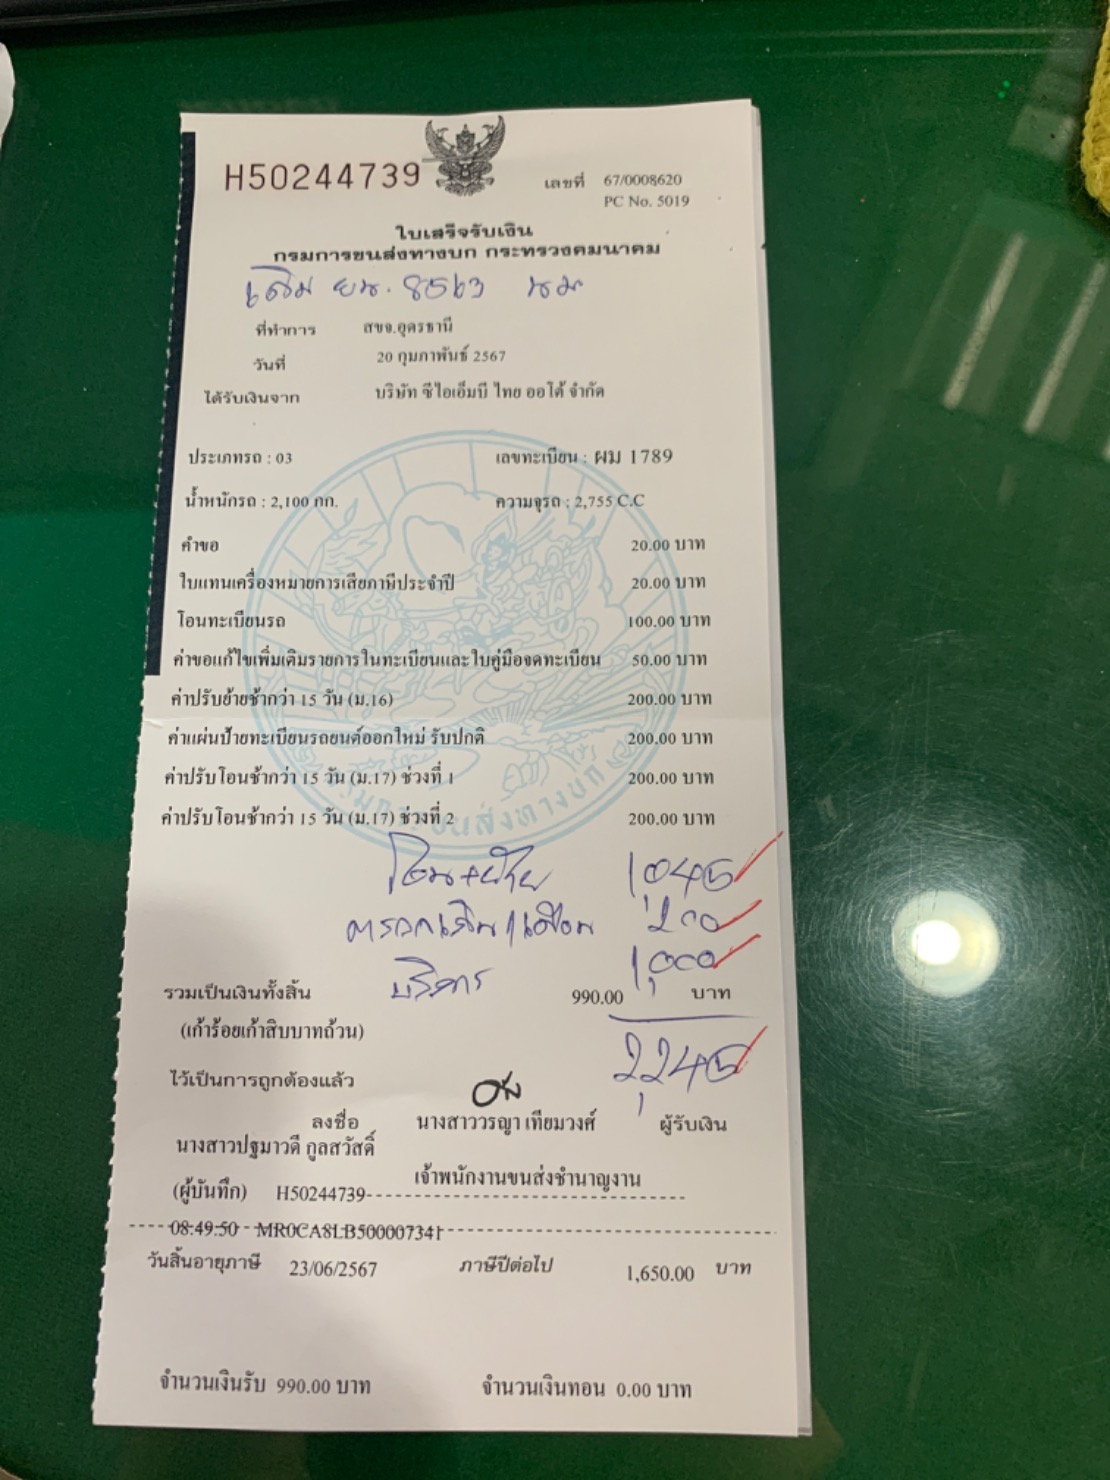 H50244739
เลขที่ 67/0008620
PC No. 5019
ใบเสร็จรับเงิน
กรมการขนส่งทางบก กระทรวงคมนาคม
เดิม ยน. 8563 นม
ที่ทำการ สขจ.อุดรธานี
วันที่ 20 กุมภาพันธ์ 2567
ได้รับเงินจาก บริษัท ซีไอเอ็มบี ไทย ออโต้ จำกัด
ประเภทรถ : 03 เลขทะเบียน : ผม 1789
น้ำหนักรถ : 2,100 กก. ความจุรถ : 2,755 C.C
คำขอ 20.00 บาท
ใบแทนเครื่องหมายการเสียภาษีประจำปี 20.00 บาท
โอนทะเบียนรถ 100.00 บาท
ค่าขอแก้ไขเพิ่มเติมรายการในทะเบียนและใบคู่มือจดทะเบียน 50.00 บาท
ค่าปรับย้ายช้ากว่า 15 วัน (ม.16) 200.00 บาท
ค่าแผ่นป้ายทะเบียนรถยนต์ออกใหม่ รับปกติ 200.00 บาท
ค่าปรับโอนช้ากว่า 15 วัน (ม.17) ช่วงที่ 1 200.00 บาท
ค่าปรับโอนช้ากว่า 15 วัน (ม.17) ช่วงที่ 2 200.00 บาท
โอน+ย้าย 1,045
200
บริการ 1,000
รวมเป็นเงินทั้งสิ้น 990.00 บาท
(เก้าร้อยเก้าสิบบาทถ้วน)
2,245
ไว้เป็นการถูกต้องแล้ว
ลงชื่อ นางสาววรญา เทียมวงศ์ ผู้รับเงิน
นางสาวปฐมาวดี กูลสวัสดิ์
เจ้าพนักงานขนส่งชำนาญงาน
(ผู้บันทึก) H50244739
08:49:50 - MR0CA8LB500007341
วันสิ้นอายุภาษี 23/06/2567 ภาษีปีต่อไป 1,650.00 บาท
จำนวนเงินรับ 990.00 บาท จำนวนเงินทอน 0.00 บาท